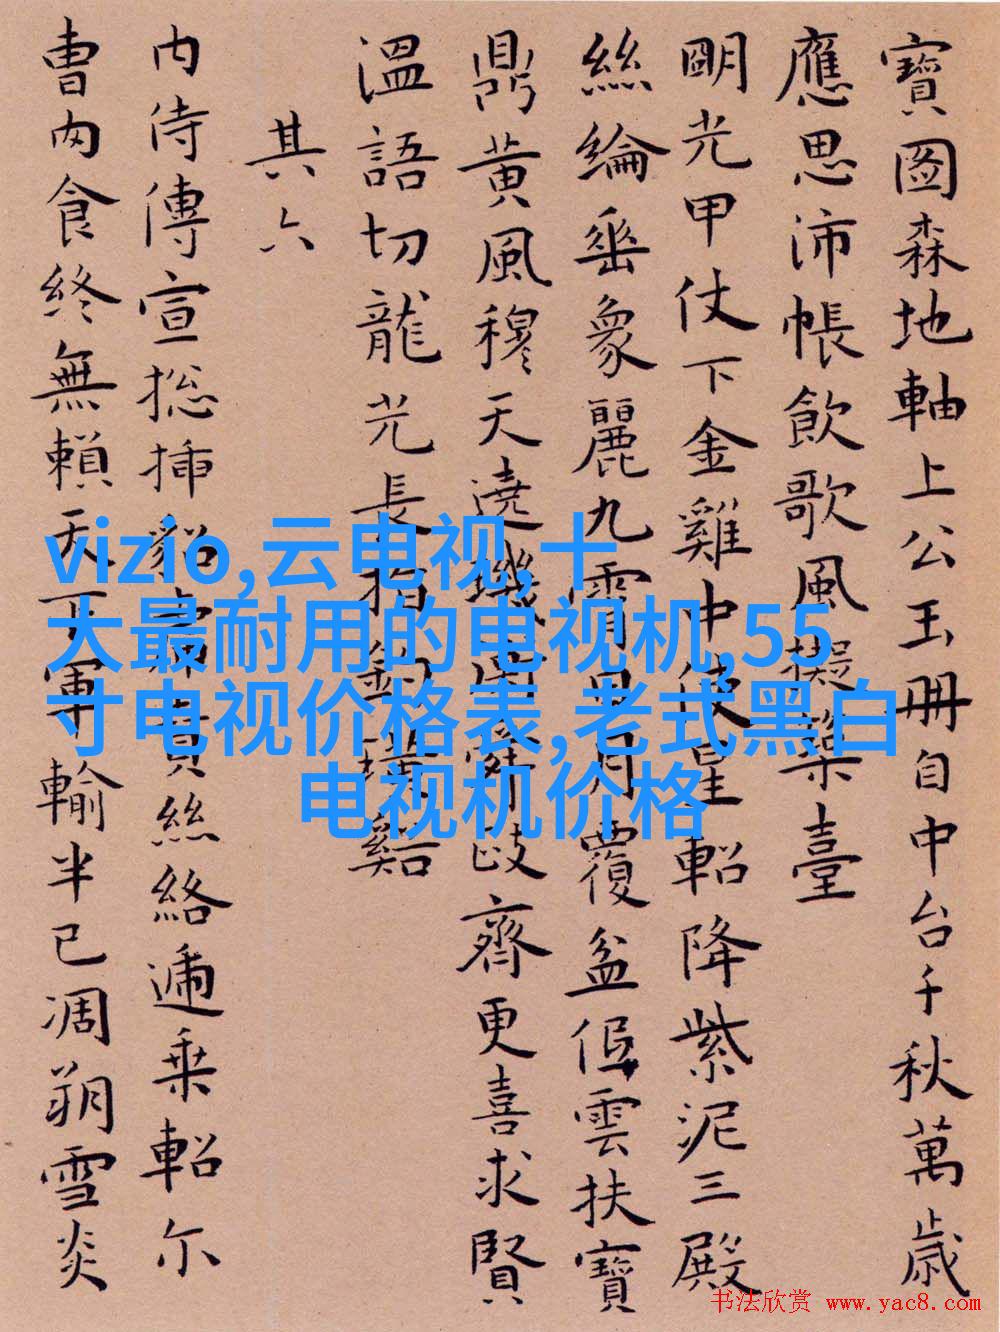 寶圖森地軸上公玉冊自中台千秋萬歲
應思沛帳飲歌風擬築臺
朙光甲仗下金雞中使星軺降紫泥三殿
絲綸垂象麗九霄日月覆盆伍雲扶寶
鼎黃風穆天遶璣齊更喜求賢
溫語切龍光長谿
其六
內侍傳宣捴揷貂絲絡逓乗軺尓
曹肉食終無賴天下軍輸半已凋朔雪炎
vizio,云电视,十
大最耐用的电视机,55
寸电视价格表,老式黑白
电视机价格
书法欣赏 www.yac8.com